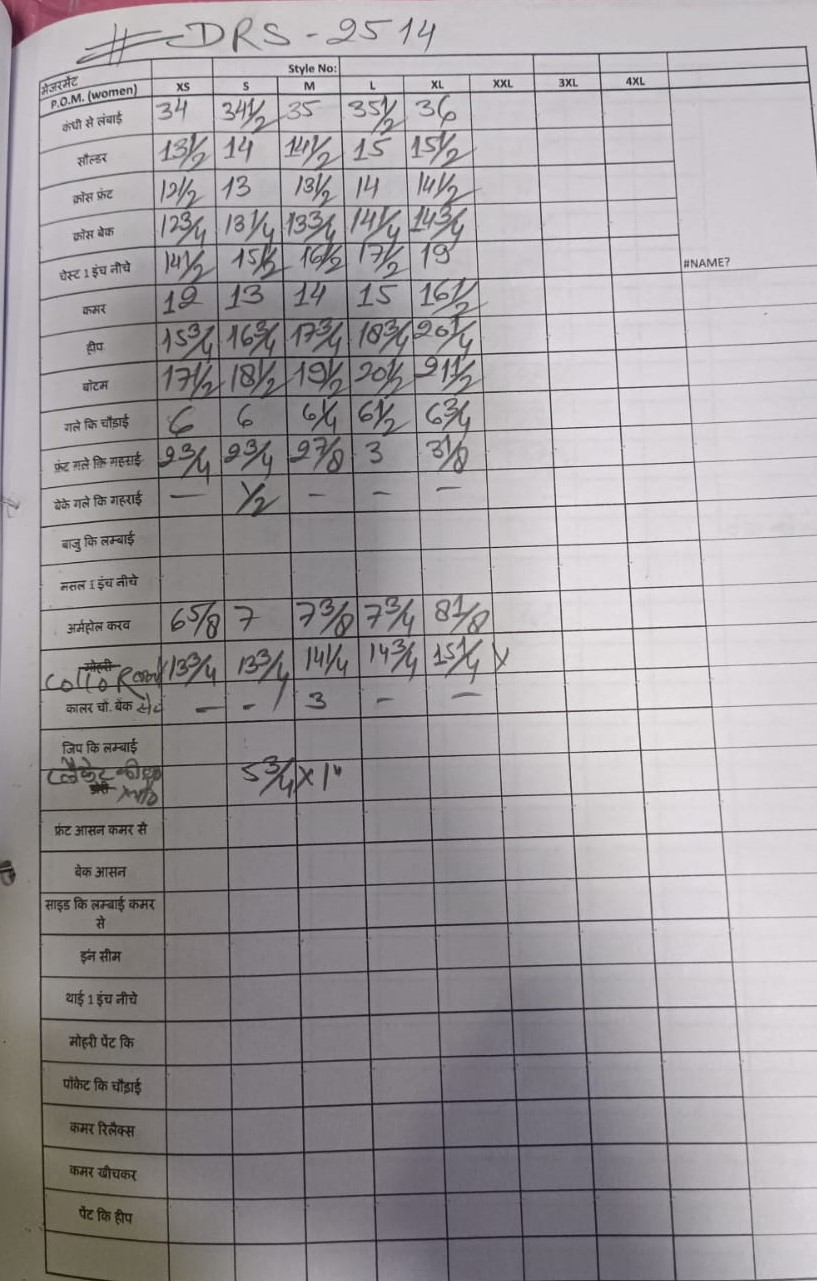 # DRS - 2514
मेजरमेंट Style No:
P.O.M. (women) XS S M L XL XXL 3XL 4XL
कंधी से लंबाई 34 34 1/2 35 35 1/2 36
सौल्डर 13 1/2 14 14 1/2 15 15 1/2
क्रोस फ्रंट 12 1/2 13 13 1/2 14 14 1/2
क्रोस बेक 12 3/4 13 1/4 13 3/4 14 1/4 14 3/4
चेस्ट 1 इंच नीचे 14 1/2 15 1/2 16 1/2 17 1/2 19 #NAME?
कमर 12 13 14 15 16 1/2
हीप 15 3/4 16 3/4 17 3/4 18 3/4 20 1/4
बोटम 17 1/2 18 1/2 19 1/2 20 1/2 21 1/2
गले कि चौड़ाई 6 6 6 1/4 6 1/2 6 3/4
फ्रंट गले कि गहराई 2 3/4 2 3/4 2 7/8 3 3 1/8
बेके गले कि गहराई — 1/2 – – –
बाजु कि लम्बाई
मसल 1 इंच नीचे
अर्महोल करव 6 5/8 7 7 3/8 7 3/4 8 1/8
मोहरी 13 3/4 13 3/4 14 1/4 14 3/4 15 1/4
कालर चौ. बेक से – - 3 – –
जिप कि लम्बाई
5 3/4 x 1"
फ्रंट आसन कमर से
बेक आसन
साइड कि लम्बाई कमर
से
इंन सीम
थाई 1 इंच नीचे
मोहरी पेंट कि
पॉकेट कि चौड़ाई
कमर रिलैक्स
कमर खीचकर
पेंट कि हीप